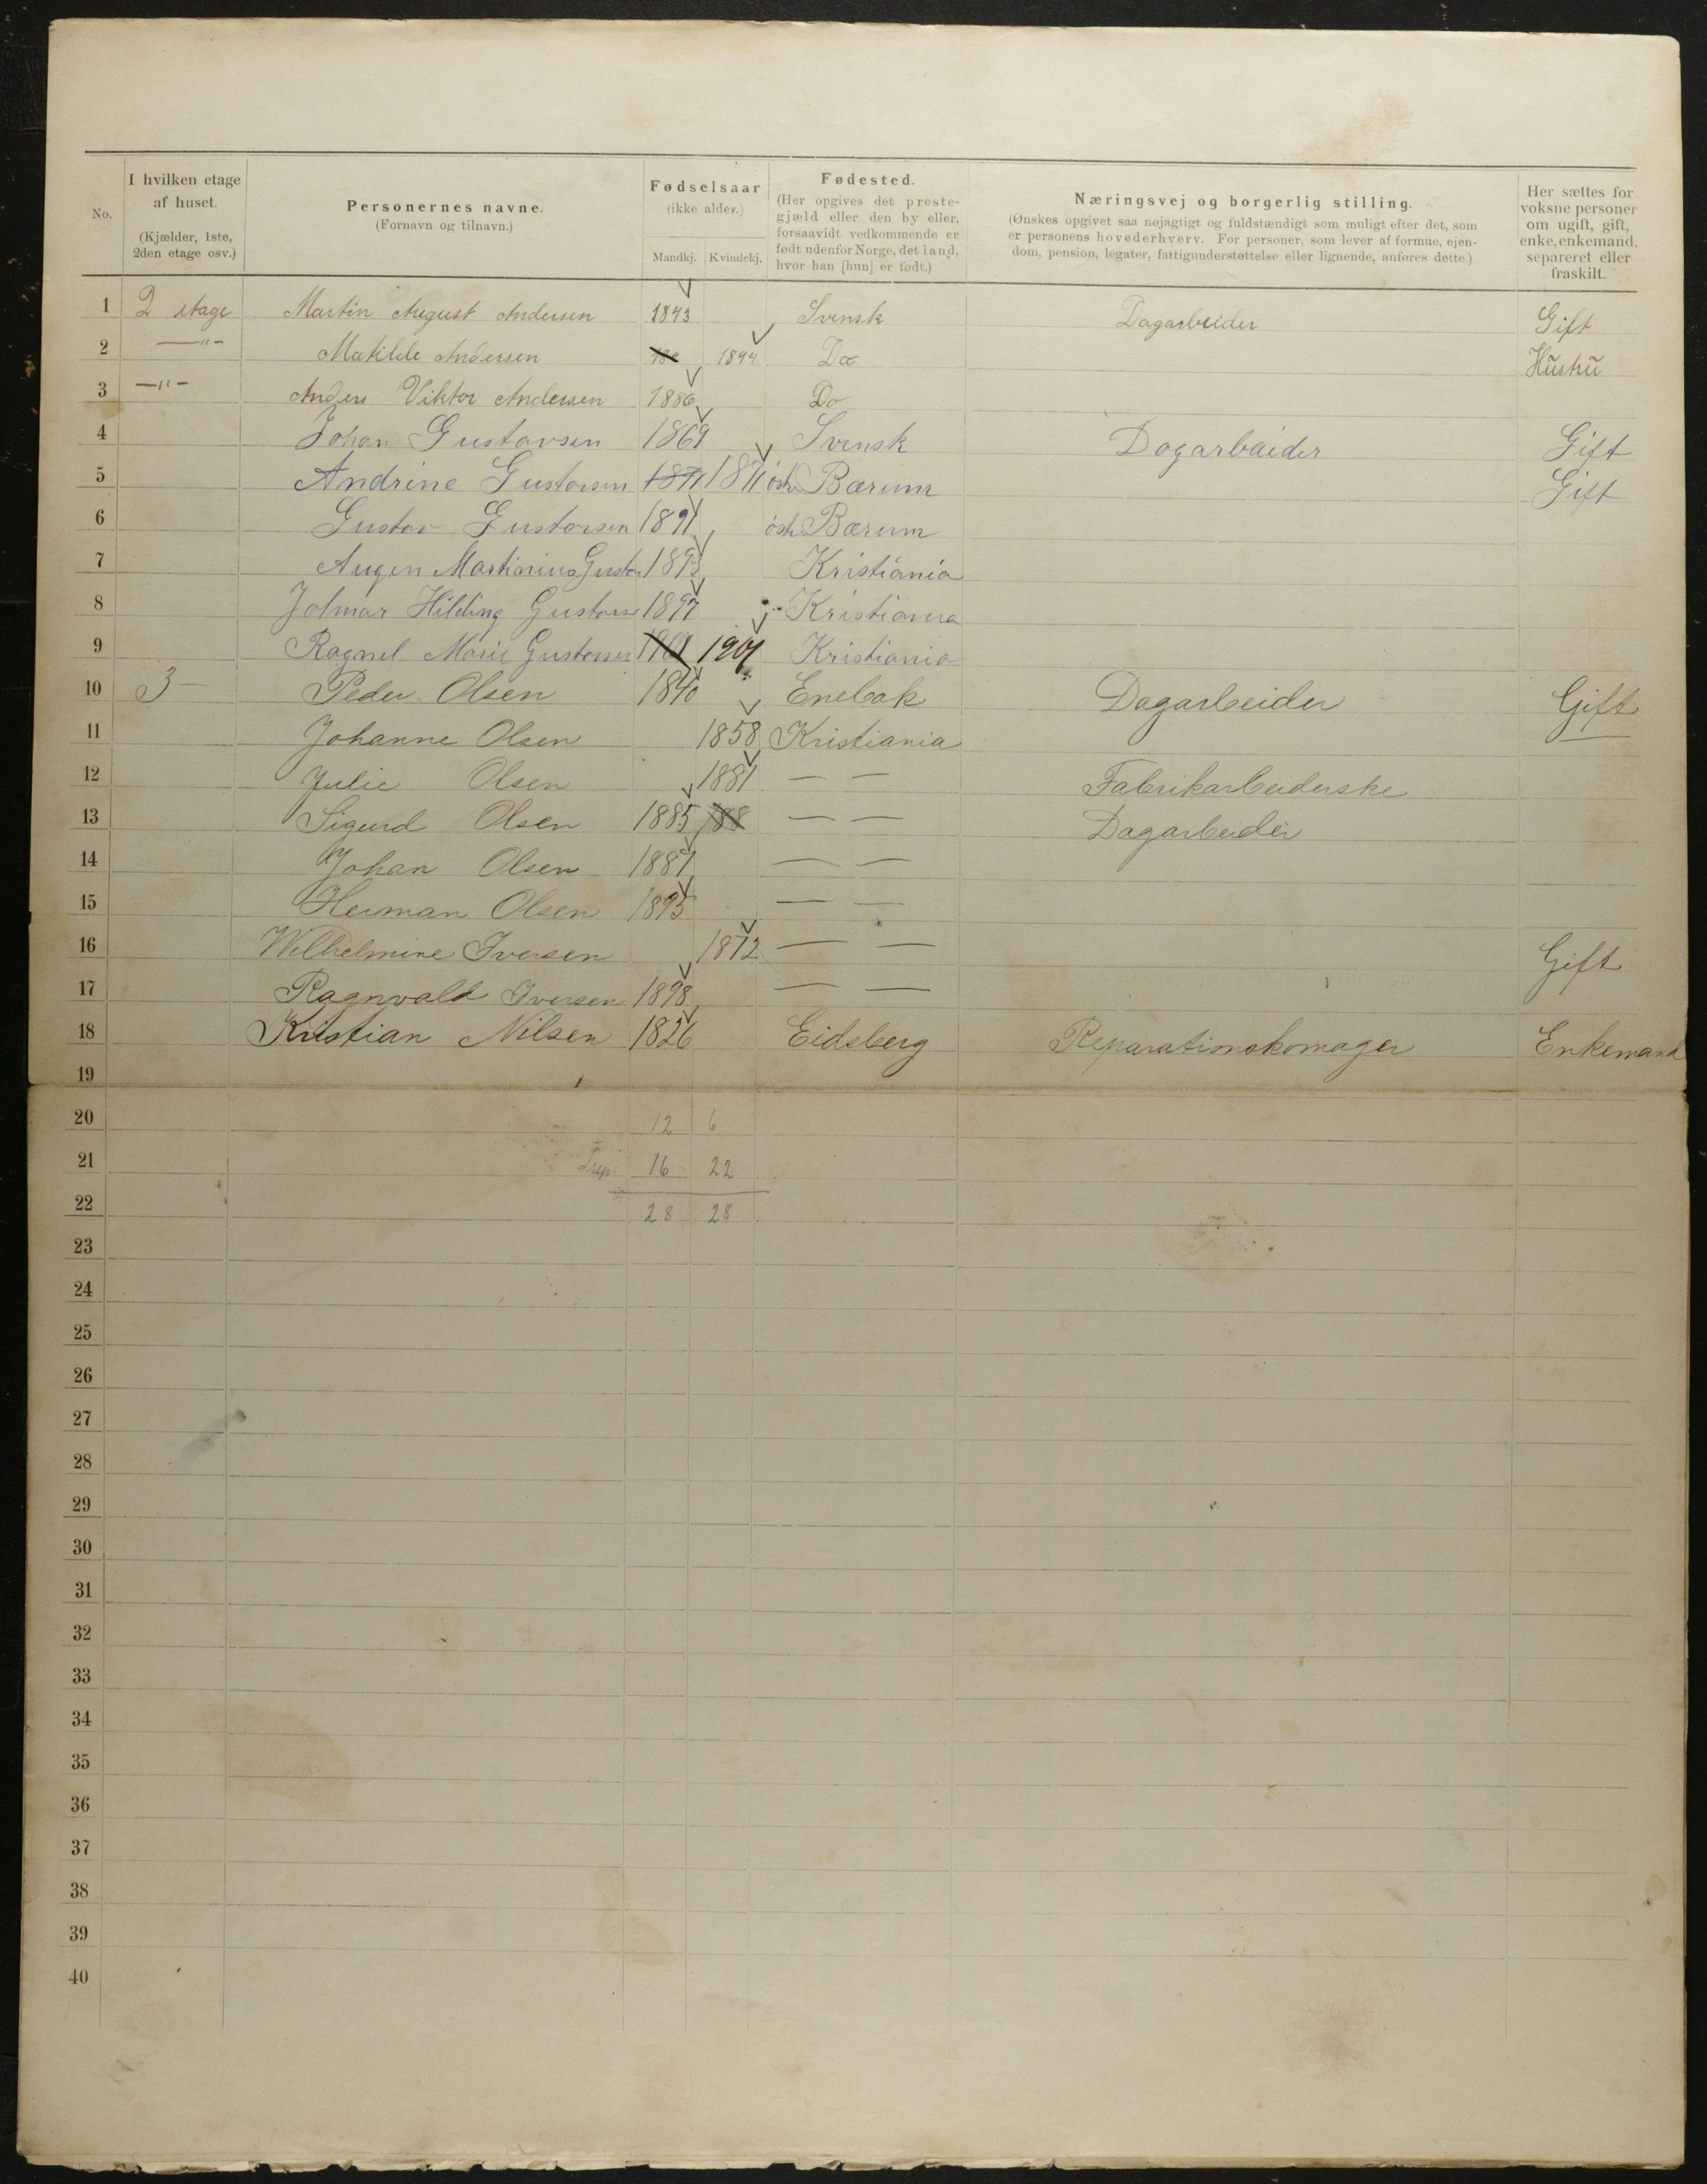 No.
I hvilken etage
af huset.
(Kjælder, 1ste,
2den etage osv.)
Personernes navne.
(Fornavn og tilnavn.)
Fødselsaar
(ikke alder.)
Mandkj. Kvindekj.
Fødested.
(Her opgives det preste-
gjæld eller den by eller,
forsaavidt vedkommende er
født udenfor Norge, det land,
hvor han [hun] er født.)
Næringsvej og borgerlig stilling.
(Ønskes opgivet saa nøjagtigt og fuldstændigt som muligt efter det, som
er personens hovederhverv. For personer, som lever af formue, ejen-
dom, pension, legater, fattigunderstøttelse eller lignende, anføres dette.)
Her sættes for
voksne personer
om ugift, gift,
enke, enkemand,
separeret eller
fraskilt.
1 2 etage Martin August Andersen 1843 Svensk Dagarbeider Gift
2 —"— Matilde Andersen 1844 Do Hustru
3 —"— Anders Viktor Andersen 1886 Do
4 Johan Gustavsen 1869 Svensk Dagarbaider Gift
5 Andrine Gustavsen 1871 1871 Bærum Gift
6 Gustav Gustavsen 1891 Bærum
7 Augen Martinius Gustav 1895 Kristiania
8 Jolmar Hilding Gustavse 1897 Kristiania
9 Ragnel Marie Gustavsen 1901 1901 Kristiania
10 3 — Peder Olsen 1840 Enebak Dagarbeider Gift
11 Johanne Olsen 1858 Kristiania
12 Julie Olsen 1881 — — Fabrikarbeiderske
13 Sigurd Olsen 1885 188 — — Dagarbeider
14 Johan Olsen 1887 — —
15 Herman Olsen 1895 — —
16 Wilhelmine Iversen 1872 — — Gift
17 Ragnvald Iversen 1898 — —
18 Kristian Nilsen 1826 Eidsberg Reparationskomager Enkemand
19
20 12 6
21 16 22
22 28 28
23
24
25
26
27
28
29
30
31
32
33
34
35
36
37
38
39
40